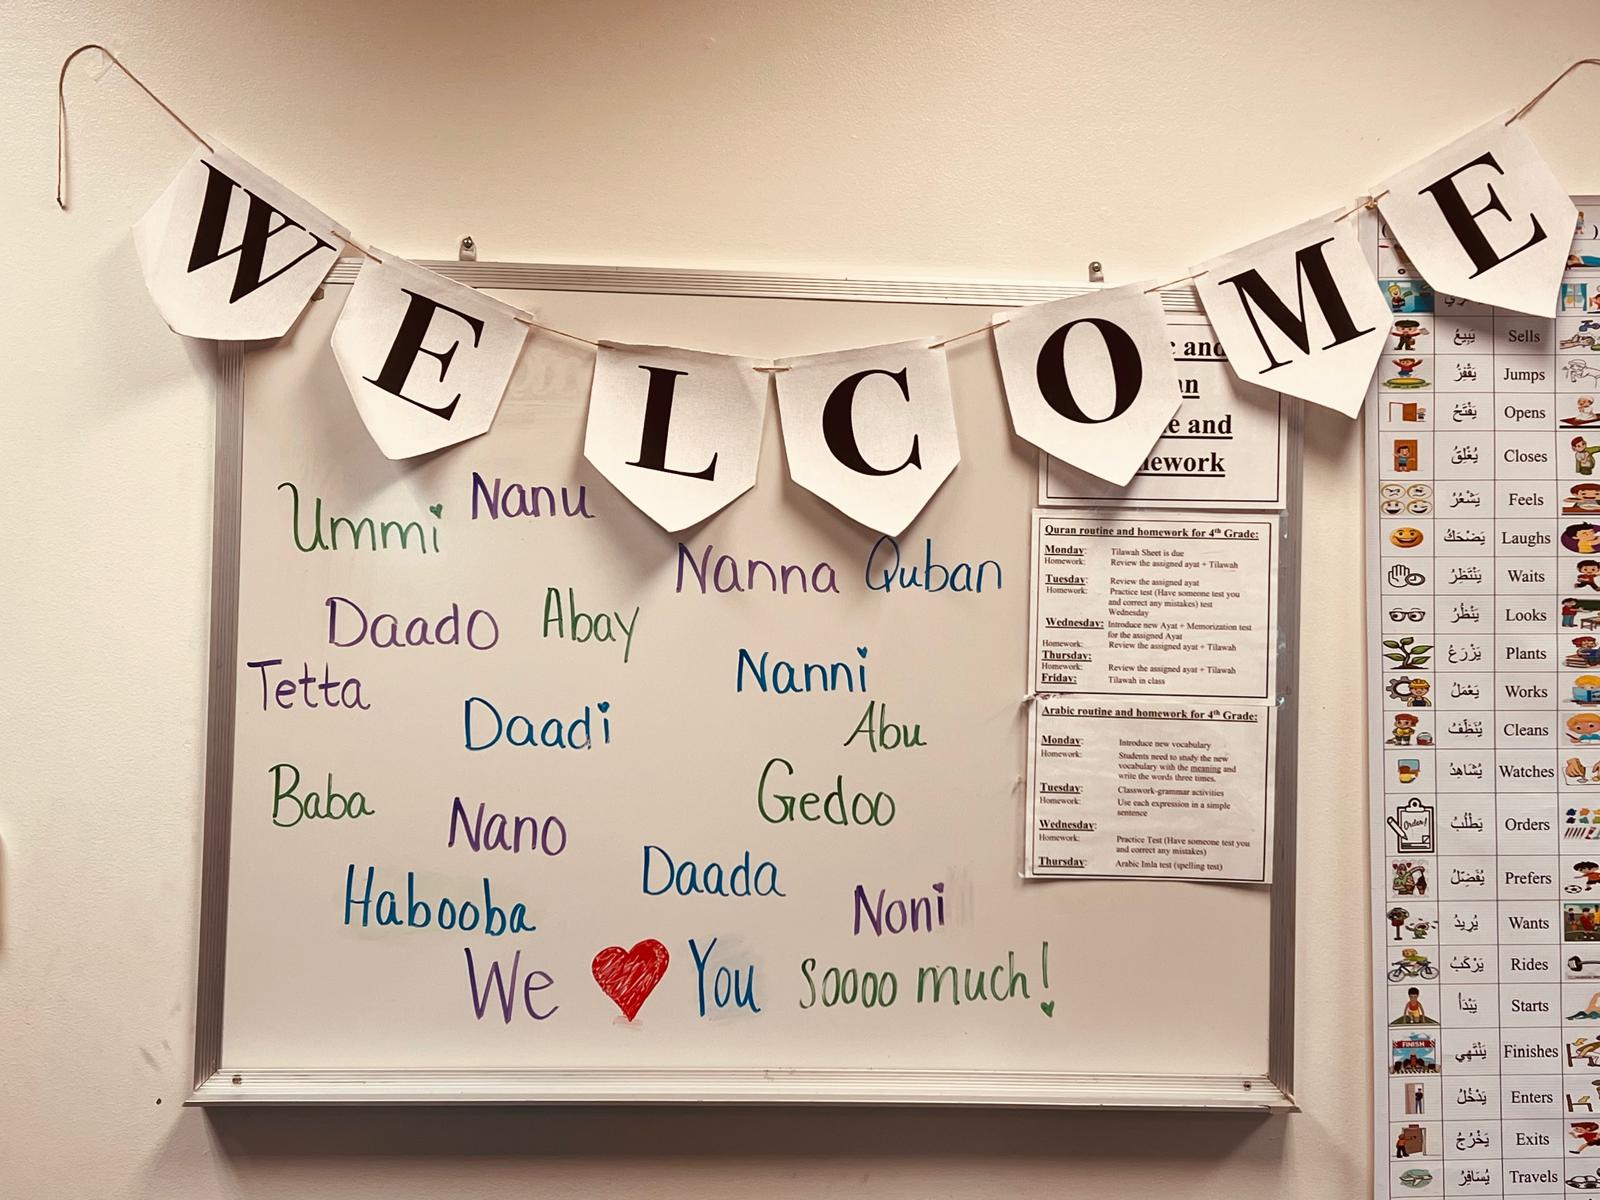 WELCOME
Ummi Nanu
Nanna Quban
Daado Abay
Tetta Nanni
Daadi Abu
Baba Gedoo
Nano
Habooba Daada Noni
We You soooo much!
and
and
Quran routine and homework for 4th Grade:
Monday: Tilawah Sheet is due
Homework: Review the assigned ayat + Tilawah
Tuesday: Review the assigned ayat
Homework: Practice test (Have someone test you
and correct any mistakes) test
Wednesday
Wednesday: Introduce new Ayat + Memorization test
for the assigned Ayat
Homework: Review the assigned ayat + Tilawah
Thursday:
Homework: Review the assigned ayat + Tilawah
Friday: Tilawah in class
Arabic routine and homework for 4th Grade:
Monday: Introduce new vocabulary
Homework: Students need to study the new
vocabulary with the meaning and
write the words three times.
Tuesday: Classwork-grammar activities
Homework: Use each expression in a simple
sentence
Wednesday:
Homework: Practice Test (Have someone test you
and correct any mistakes)
Thursday: Arabic Imla test (spelling test)
يَبِيعُ Sells
يَقْفِزُ Jumps
يَفْتَحُ Opens
يُغْلِقُ Closes
يَشْعُرُ Feels
يَضْحَكُ Laughs
يَنْتَظِرُ Waits
يَنْظُرُ Looks
يَزْرَعُ Plants
يَعْمَلُ Works
يُنَظِّفُ Cleans
يُشَاهِدُ Watches
Order!
يَطْلُبُ Orders
يُفَضِّلُ Prefers
يُرِيدُ Wants
يَرْكَبُ Rides
يَبْدَأُ Starts
FINISH
يَنْتَهِي Finishes
يَدْخُلُ Enters
يَخْرُجُ Exits
يُسَافِرُ Travels